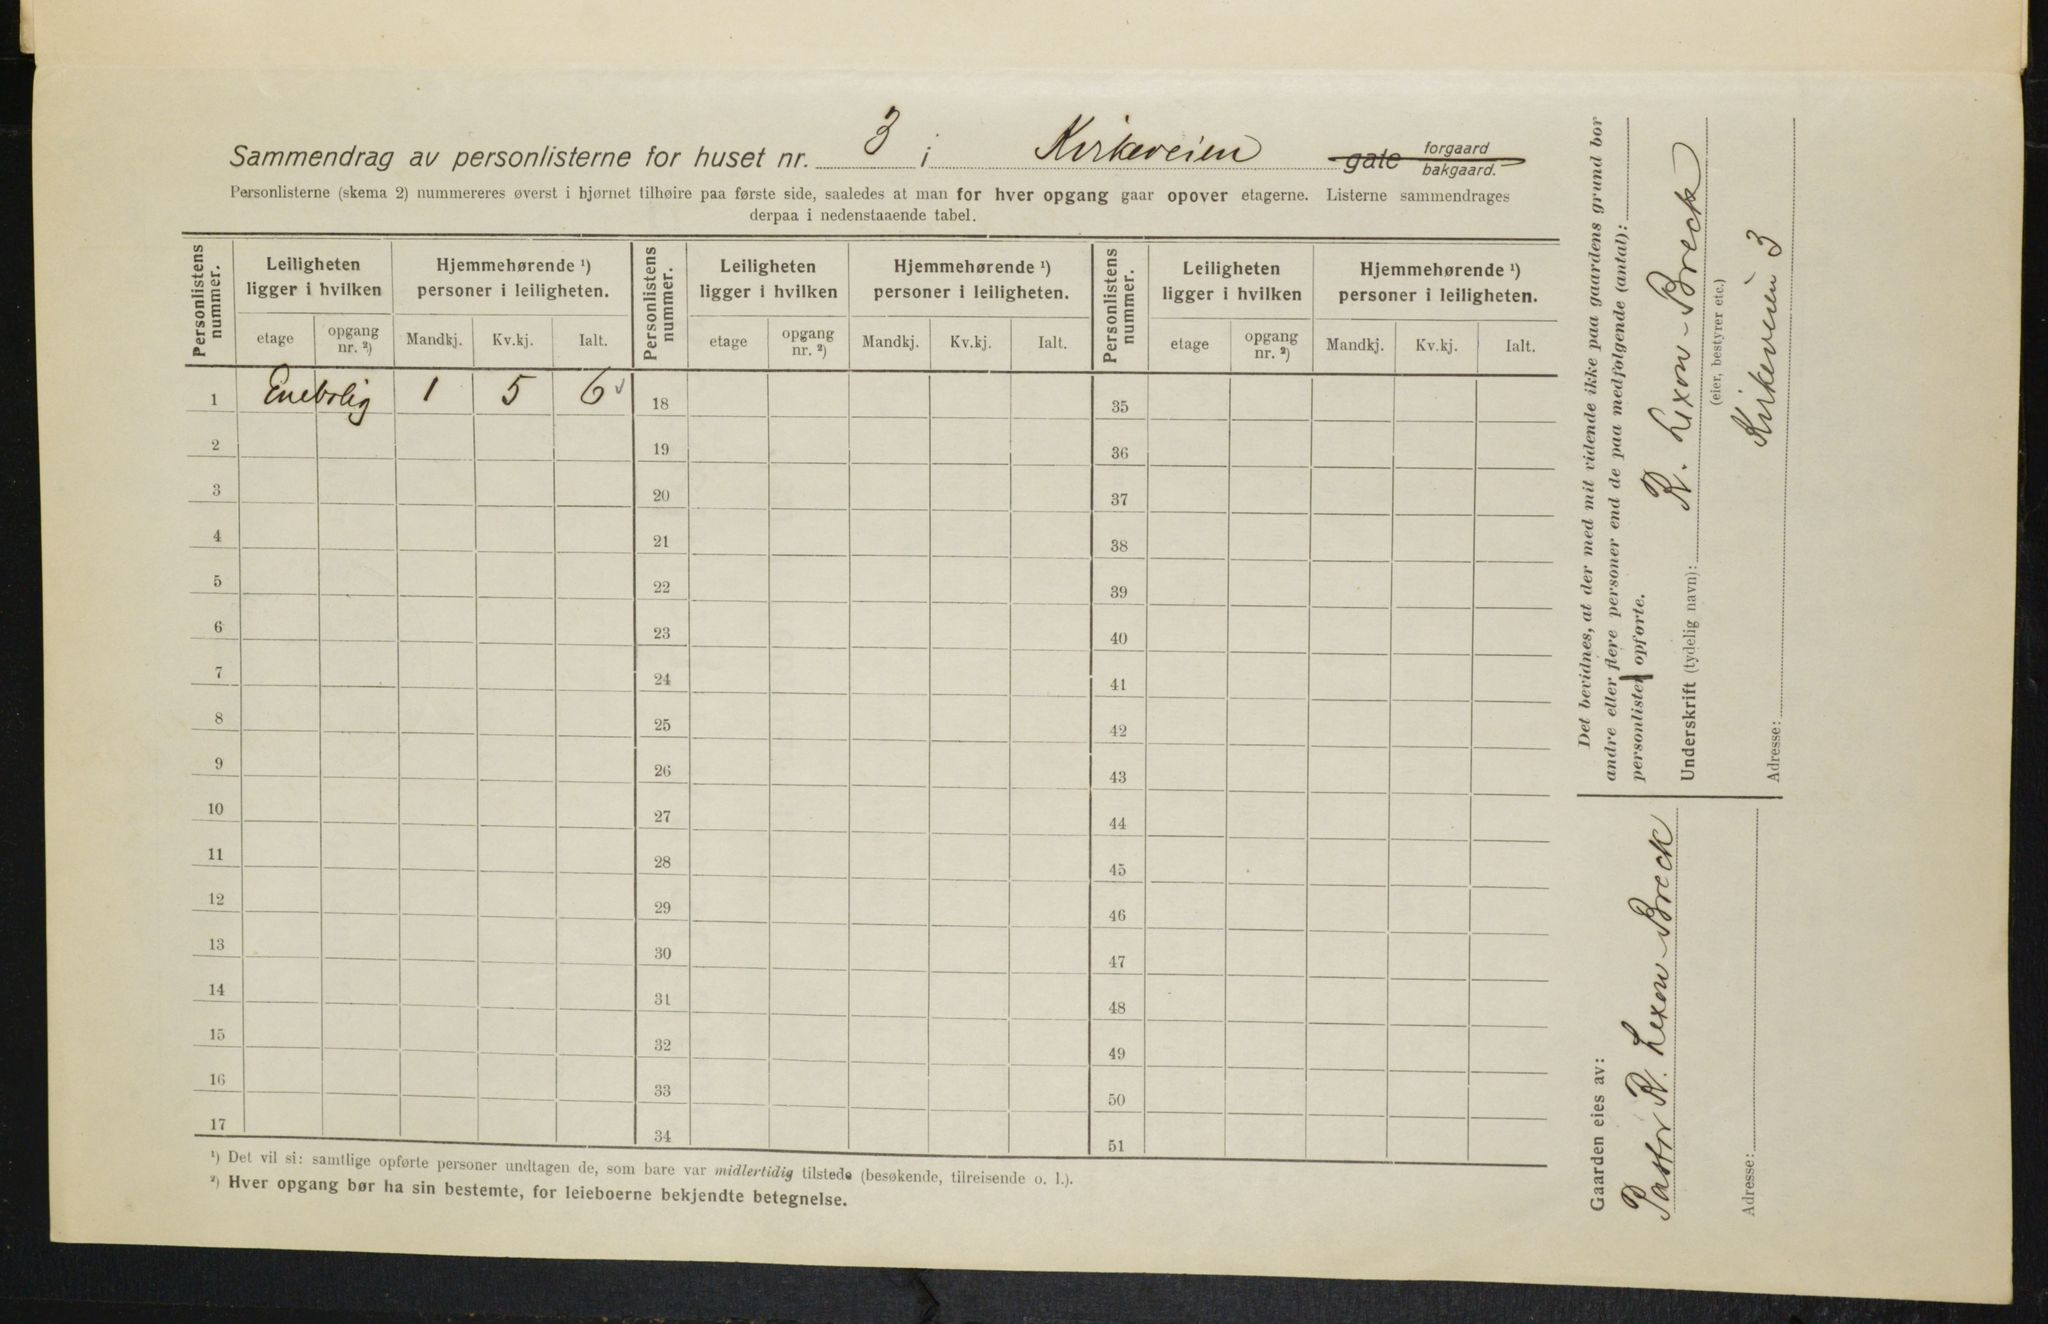 Sammendrag av personlisterne for huset nr. 3 i Kirkeveien gate forgaard bakgaard.
Personlisterne (skema 2) nummereres øverst i hjørnet tilhøire paa første side, saaledes at man for hver opgang gaar opover etagerne. Listerne sammendrages
derpaa i nedenstaaende tabel.
Personlistens nummer. Leiligheten ligger i hvilken Hjemmehørende ¹) personer i leiligheten. Personlistens nummer. Leiligheten ligger i hvilken Hjemmehørende ¹) personer i leiligheten. Personlistens nummer. Leiligheten ligger i hvilken Hjemmehørende ¹) personer i leiligheten.
etage opgang nr. ²) Mandkj. Kv.kj. Ialt. etage opgang nr. ²) Mandkj. Kv.kj. Ialt. etage opgang nr. ²) Mandkj. Kv.kj. Ialt.
1 Enebolig 1 5 6 18 35
2 19 36
3 20 37
4 21 38
5 22 39
6 23 40
7 24 41
8 25 42
9 26 43
10 27 44
11 28 45
12 29 46
13 30 47
14 31 48
15 32 49
16 33 50
17 34 51
¹) Det vil si: samtlige opførte personer undtagen de, som bare var midlertidig tilstede (besøkende, tilreisende o. l.).
²) Hver opgang bør ha sin bestemte, for leieboerne bekjendte betegnelse.
Det bevidnes, at der med mit vidende ikke paa gaardens grund bor
andre eller flere personer end de paa medfølgende (antal):
personlister opførte.
Underskrift (tydelig navn): R. Lexow-Breck
(eier, bestyrer etc.)
Adresse: Kirkeveien 3
Gaarden eies av:
Pastor R. Lexow-Breck
Adresse: